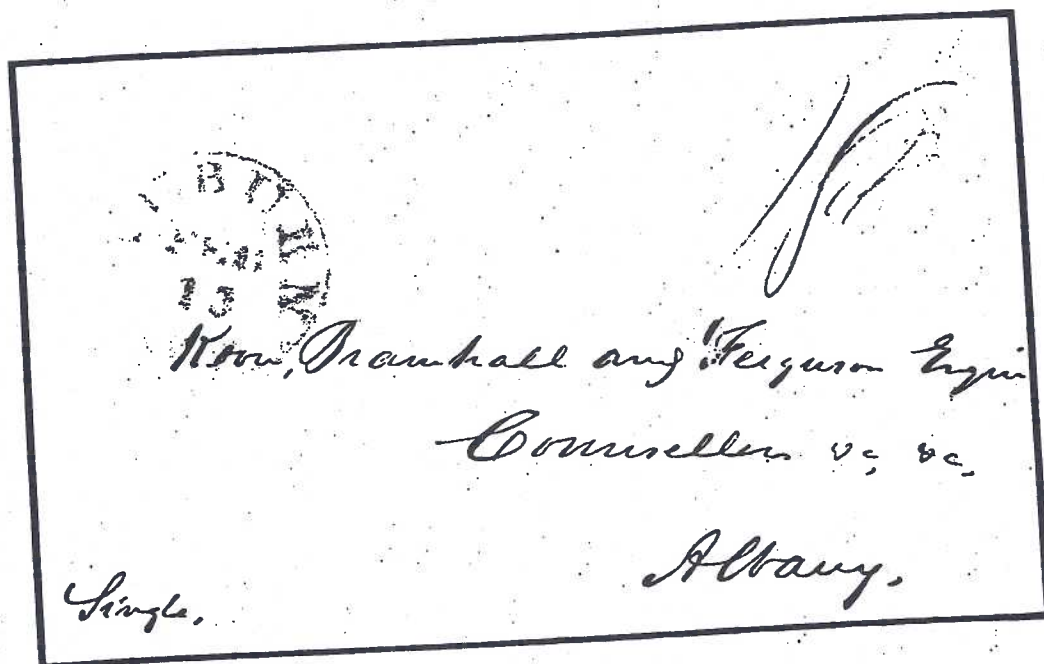 AUBURN
13
Koon, Bramhall and Ferguson Esqrs
Counsellers &c, &c,
Albany.
Single.